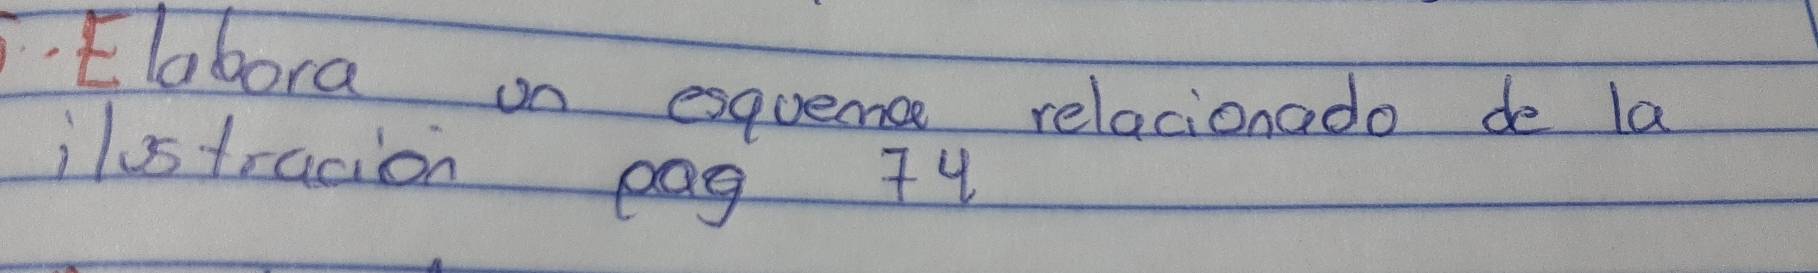 Elabora un esquema relacionado de la
ilustración pag 74